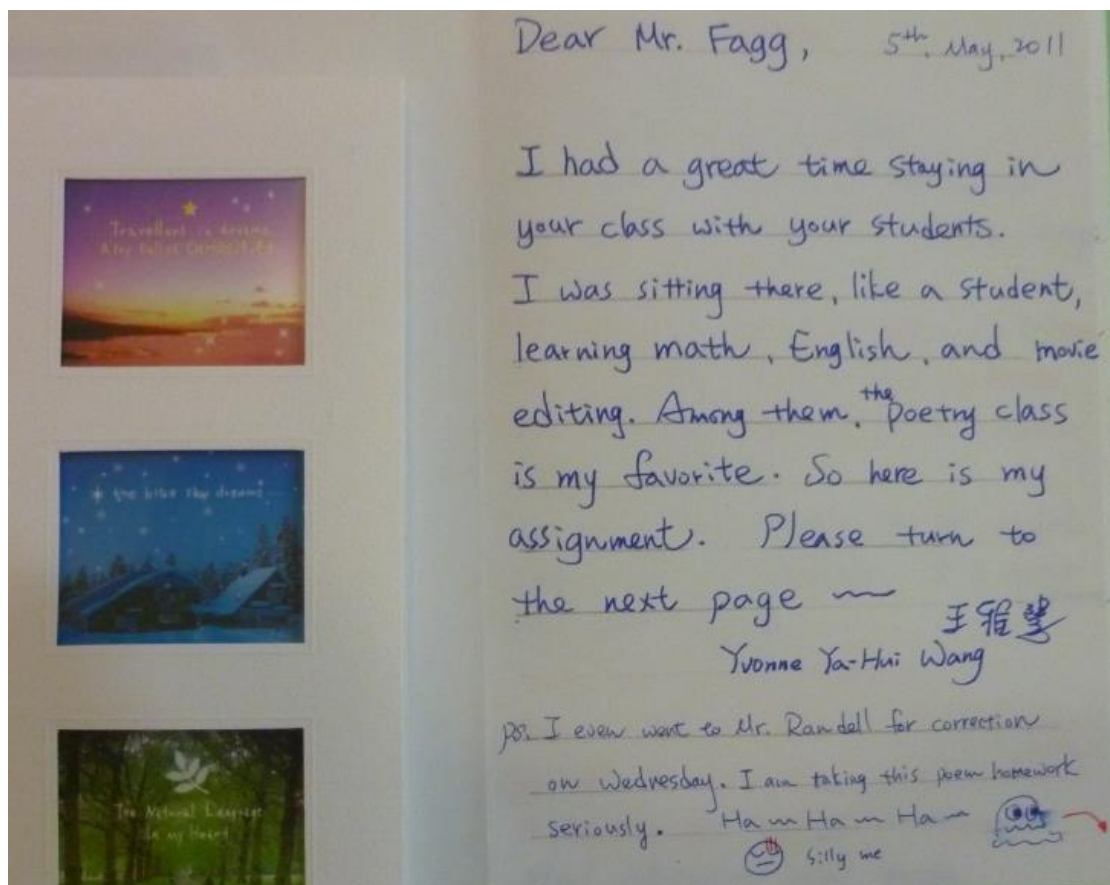 Travellers in dreams
the blue sky dreams
The Natural Language
In my Heart
Dear Mr. Fagg, 5th, May, 2011
I had a great time staying in
your class with your students.
I was sitting there, like a student,
learning math, English, and movie
editing. Among them, the poetry class
is my favorite. So here is my
assignment. Please turn to
the next page ~
王雅慧
Yvonne Ya-Hui Wang
ps. I even went to Mr. Randell for correction
on Wednesday. I am taking this poem homework
seriously. Ha~Ha~Ha~
silly me